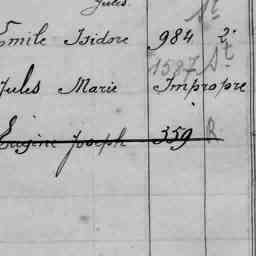 Jules
Emile Isidore 984 2e St
1587 St
Jules Marie Impropre
Eugène Joseph 359 R